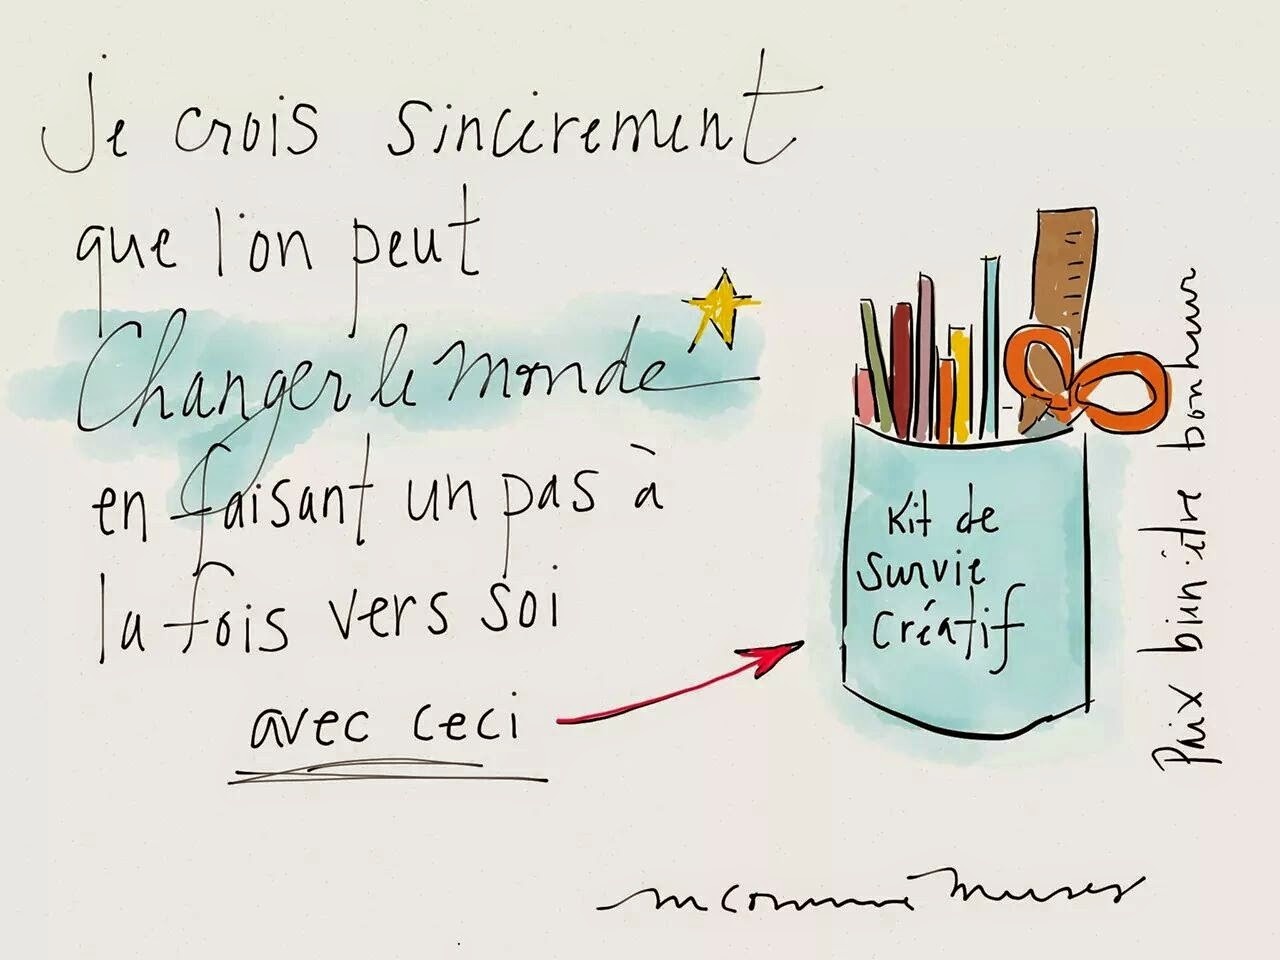 Je crois sincèrement
que l'on peut
Changer le monde
en faisant un pas à
la fois vers soi
avec ceci
Kit de
Survie
Créatif
Paix bien-être bonheur
m comme muses